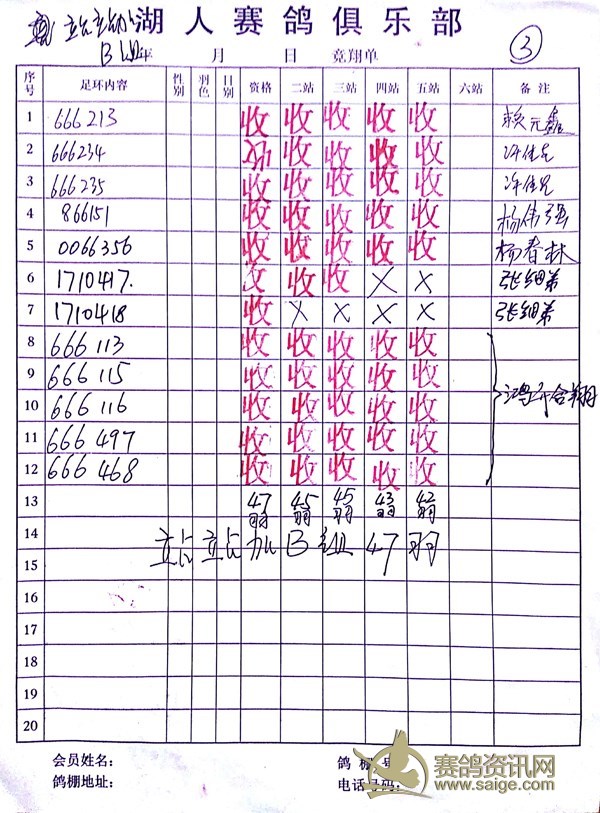 站站加湖人赛鸽俱乐部
B组 年 月 日 竞翔单 ③
序号 足环内容 性别 羽色 日别 资格 二站 三站 四站 五站 六站 备注
1 666213 收 收 收 收 收 赖元鑫
2 666234 收 收 收 收 收 许佳兄
3 666235 收 收 收 收 收 许佳兄
4 866151 收 收 收 收 收 杨伟强
5 0066356 收 收 收 收 收 杨春林
6 1710417. 收 收 收 X X 张细弟
7 1710418 收 X X X X 张细弟
8 666113 收 收 收 收 收
9 666115 收 收 收 收 收
10 666116 收 收 收 收 收 合翔
11 666497 收 收 收 收 收
12 666468 收 收 收 收 收
13 47羽 45羽 45羽 43羽 42羽
14 站站加B组47羽
15
16
17
18
19
20
会员姓名: 鸽棚号
鸽棚地址: 电话号码:
赛鸽资讯网
www.saige.com